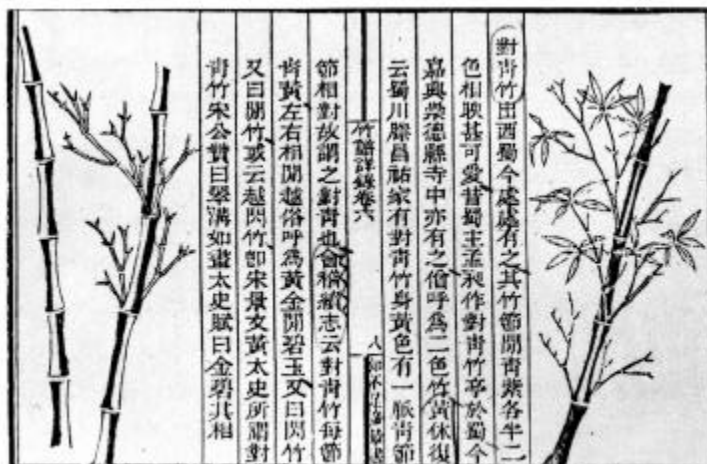 對青竹出西蜀今處處有之其竹節間青紫各半二
色相映甚可愛昔蜀主孟昶作對青竹亭於蜀今
嘉興崇德縣寺中亦有之僧呼爲二色竹黃休復
云蜀川滕昌祐家有對青竹身黃色有一脈青節
竹譜詳錄卷六
八
知不足齋叢書
節相對故謂之對青也會稽續志云對青竹每節
青黃左右相間越俗呼爲黃金間碧玉又曰閃竹
又曰間竹或云越閃竹卽宋景文黃太史所謂對
青竹宋公贊曰翠溝如畫太史賦曰金碧其相